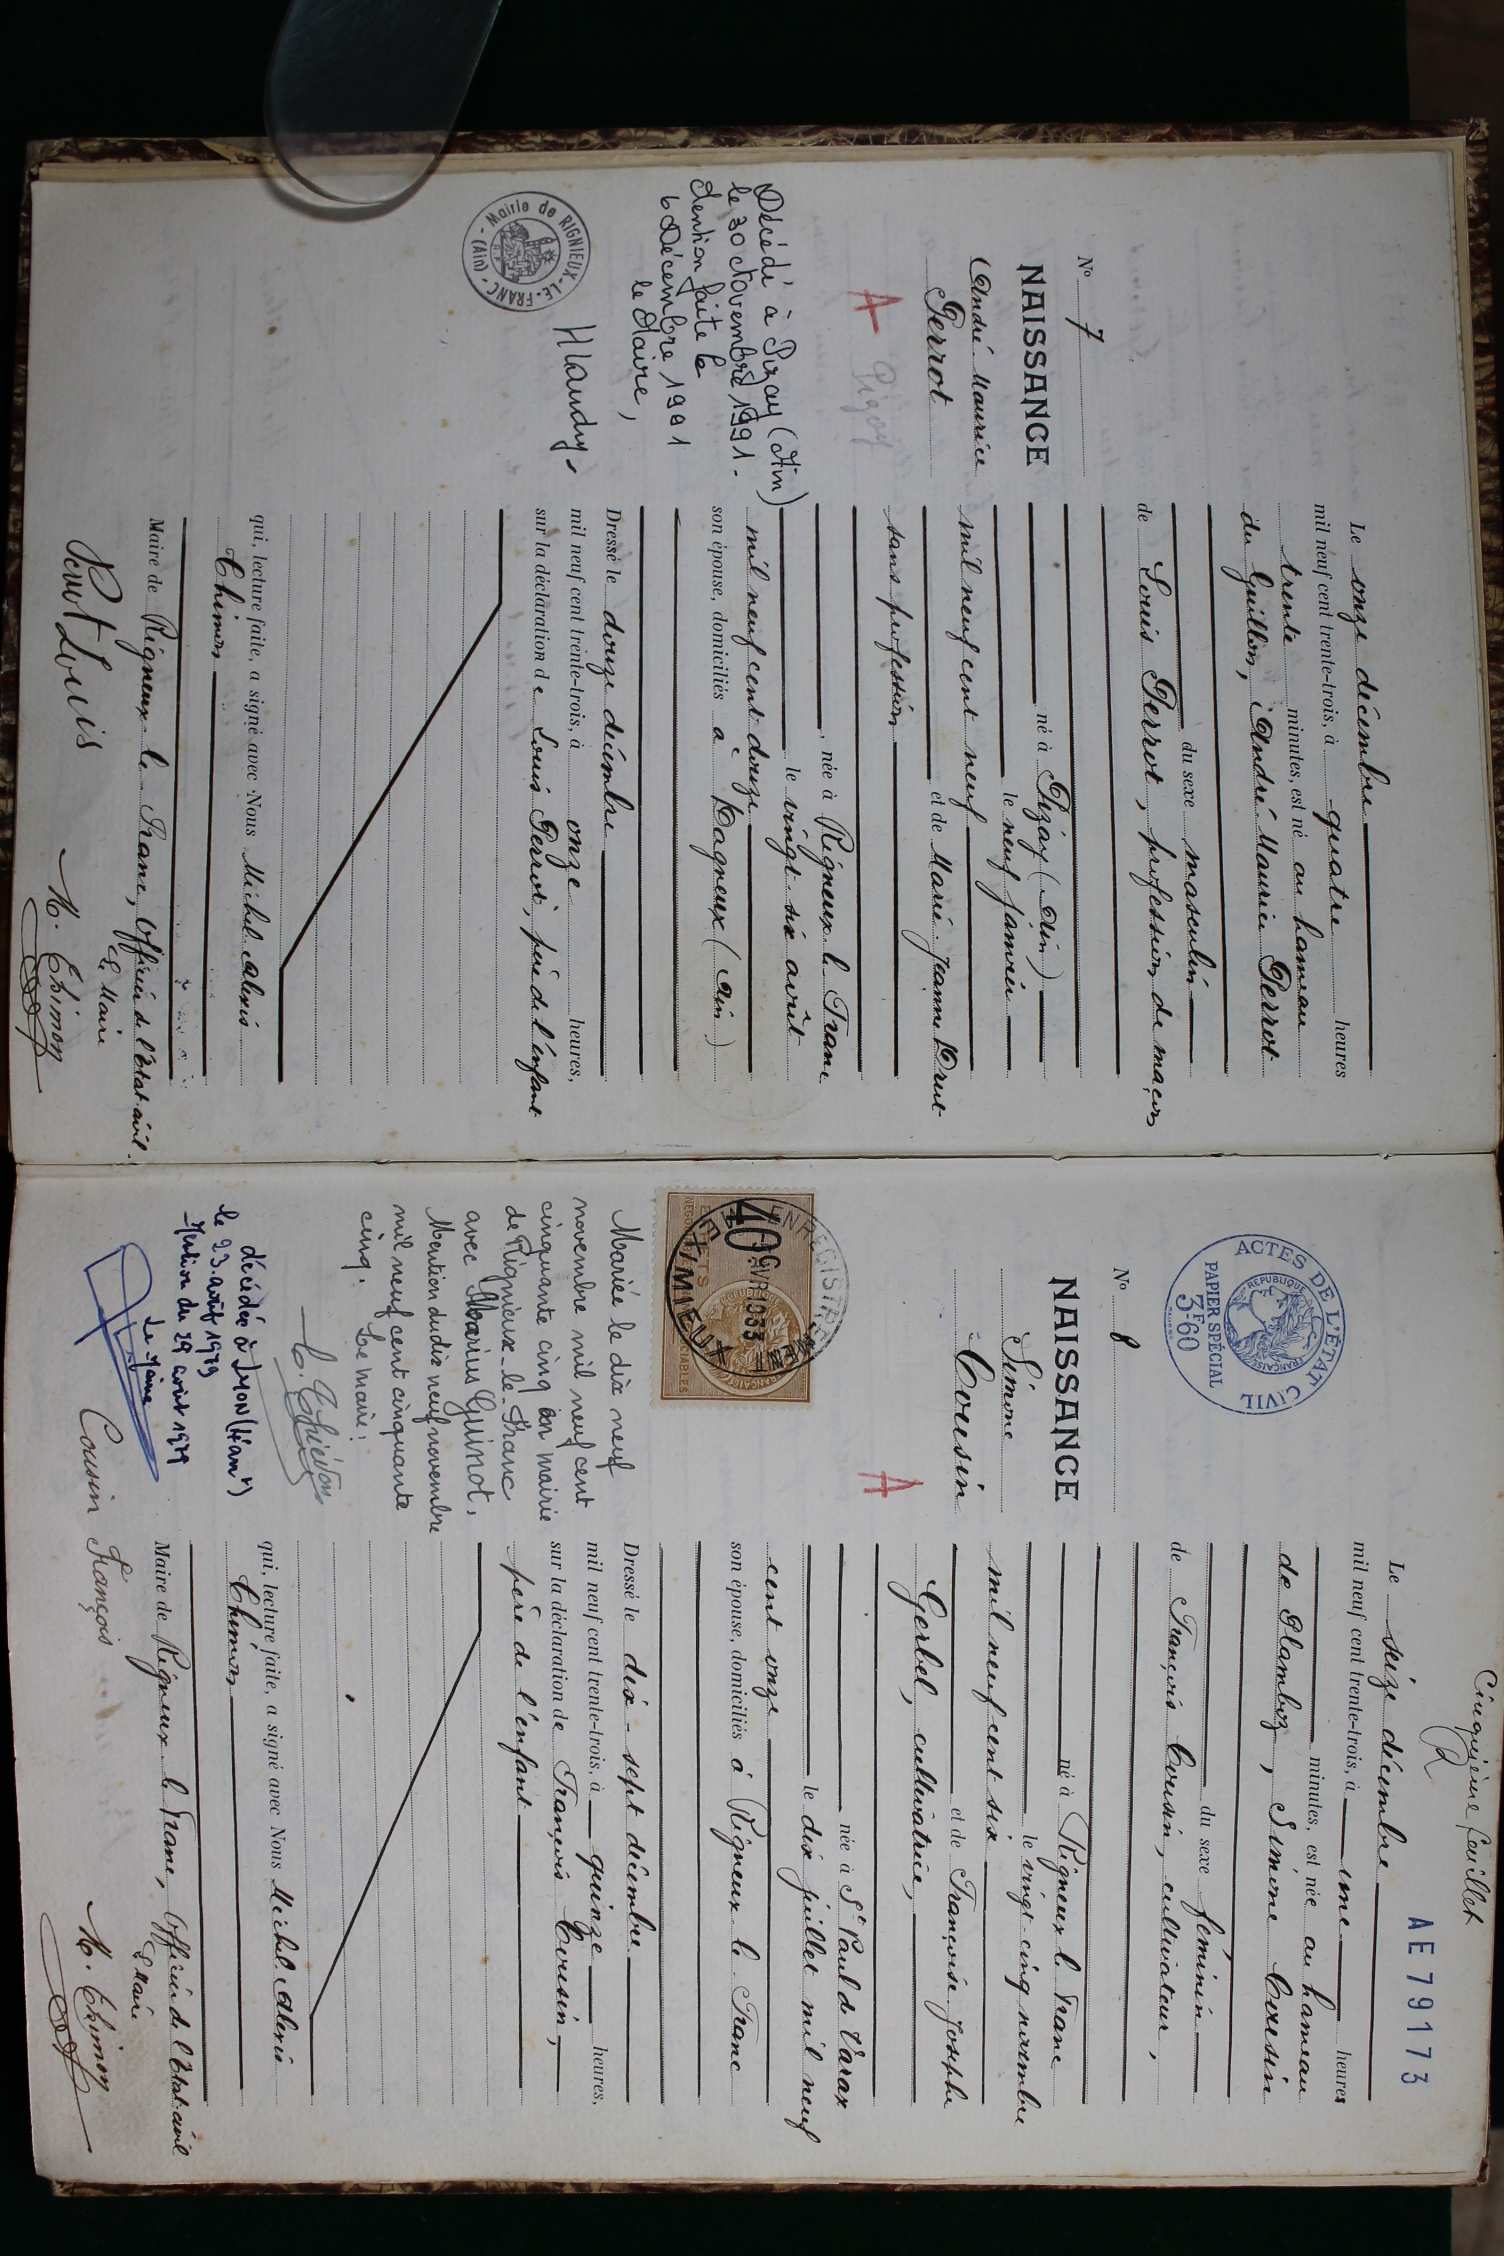 N° 7
NAISSANCE
André Maurice
Perrot
A
Décédé à Pizay (Ain)
le 30 Novembre 1991.
Mention faite le
6 Décembre 1991
le Maire,
Mairie de RIGNIEUX-LE-FRANC
(Ain)
Le onze décembre
mil neuf cent trente-trois, à quatre heures
trente minutes, est né au hameau
du Guillon, André Maurice Perrot
du sexe masculin
de Louis Perrot, profession de maçon
né à Pizay (Ain)
le neuf janvier
mil neuf cent neuf
et de Marie Jeanne Brut
sans profession
née à Rigneux le Franc
le vingt-six avril
mil neuf cent douze
son épouse, domiciliés à Dagneux (Ain)
Dressé le douze décembre
mil neuf cent trente-trois, à onze heures,
sur la déclaration de Louis Perrot, père de l'enfant
qui, lecture faite, a signé avec Nous Michel Alexis
Thimon
Maire de Rigneux-le-Franc, Officier de l'Etat-civil.
Le Maire
Perrot Louis
M. Thimon
Cinquième feuillet
AE79173
ACTES DE L'ETAT CIVIL
REPUBLIQUE FRANÇAISE
PAPIER SPÉCIAL
3F60
N° 8
NAISSANCE
Simone
Cousin
A
40c
ENREGISTREMENT
AVR 1933
MEXIMIEUX
Mariée le dix neuf
novembre mil neuf cent
cinquante cinq en mairie
de Rignieux-le-Franc
avec Marius Guinot,
Mention du dix neuf novembre
mil neuf cent cinquante
cinq.
Le maire:
décédée à Lyon (4ème arrt)
le 23 août 1979
Mention du 29 août 1979
Le Maire
Le seize décembre
mil neuf cent trente-trois, à une heures
minutes, est née au hameau
de Plamboz, Simone Cousin
du sexe féminin
de François Cousin, cultivateur,
né à Rigneux le Franc
le vingt-cinq novembre
mil neuf cent six
et de Françoise Josephe
Gerbel, cultivatrice,
née à St Paul de Varax
le dix juillet mil neuf
cent onze
son épouse, domiciliés à Rigneux le Franc
Dressé le dix-sept décembre
mil neuf cent trente-trois, à quinze heures,
sur la déclaration de François Cousin,
père de l'enfant
qui, lecture faite, a signé avec Nous Michel Alexis
Thimon
Maire de Rigneux le Franc, Officier de l'Etat-civil
Le Maire
Cousin François
M. Thimon